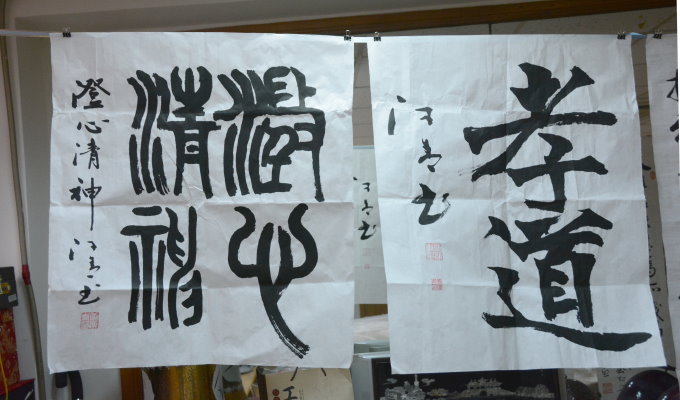 澂心
清神
澄心清神 汪青书
孝道
汪青书